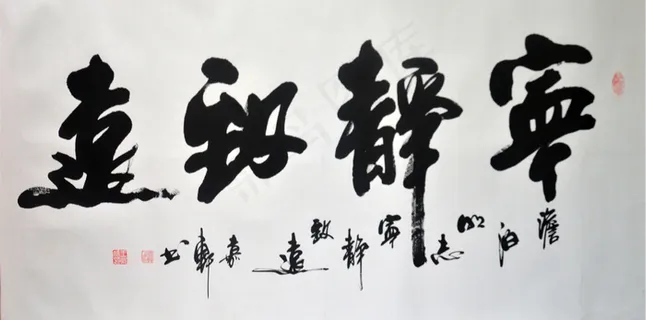 寧靜致遠
澹泊明志寧靜致遠嘉軒书